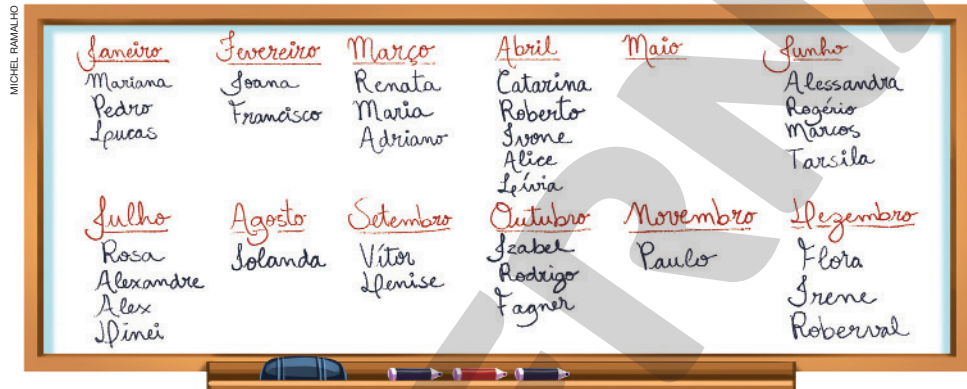 MICHEL RAMALHO
Janeiro
Mariana
Pedro
Lucas
Fevereiro
Joana
Francisco
Março
Renata
Maria
Adriano
Abril
Catarina
Roberto
Ivone
Alice
Lívia
Maio
Junho
Alessandra
Rogério
Marcos
Tarsila
Julho
Rosa
Alexandre
Alex
Dinei
Agosto
Iolanda
Setembro
Vítor
Denise
Outubro
Izabel
Rodrigo
Fagner
Novembro
Paulo
Dezembro
Flora
Irene
Roberval